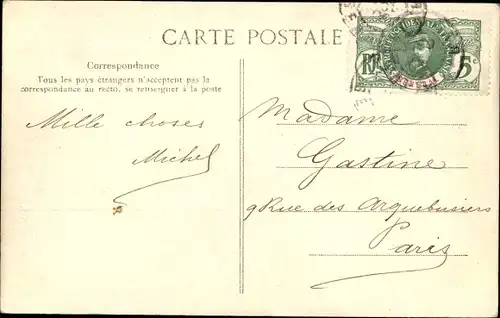 CARTE POSTALE
Correspondance
Tous les pays étrangers n'acceptent pas la
correspondance au recto, se renseigner à la poste
RF 5c
Mille choses
Michel
Madame
Gastine
9 Rue des Arquebusiers
Paris